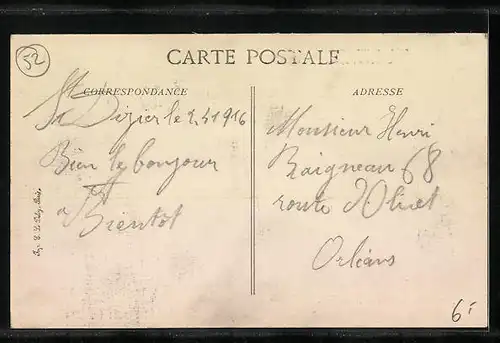 52
CARTE POSTALE
CORRESPONDANCE
ADRESSE
St Dizier le 2.4.1916
Bien le bonjour
et
a Bientôt
Monsieur Henri
Raigneau 68
route d'Olivet
Orléans
6